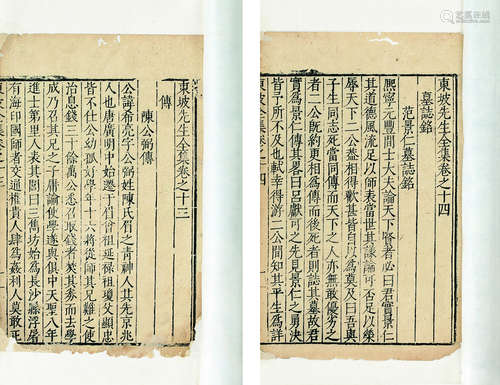 東坡先生全集卷之十三
傳
陳公弼傳
公諱希亮字公弼姓陳氏眉之青神人其先京兆
人也唐廣明中始遷于眉曾祖延祿祖瓊父顯忠
皆不仕公幼孤好學年十六將從師其兄難之使
治息錢三十餘萬公悉召取錢者焚其券而去學
成乃召其兄之子庸諭使學遂與俱中天聖八年
進士第里人表其閭曰三儁坊始為長沙縣浮屠
有海印國師者交通權貴人肆為姦利人莫敢正
東坡先生全集卷之十四
墓誌銘
范景仁墓誌銘
熈寧元豐間士大夫論天下賢者必曰君實景仁
其道德風流足以師表當世其議論可否足以榮
辱天下二公蓋相得歡甚皆自以為莫及曰吾與
子生同志死當同傳而天下之人亦無敢優劣之
者二公既約更相為傳而後死者則誌其墓故君
實為景仁傳其畧曰呂獻可之先見景仁之勇決
皆予所不及也軾幸得游二公間知其平生為詳